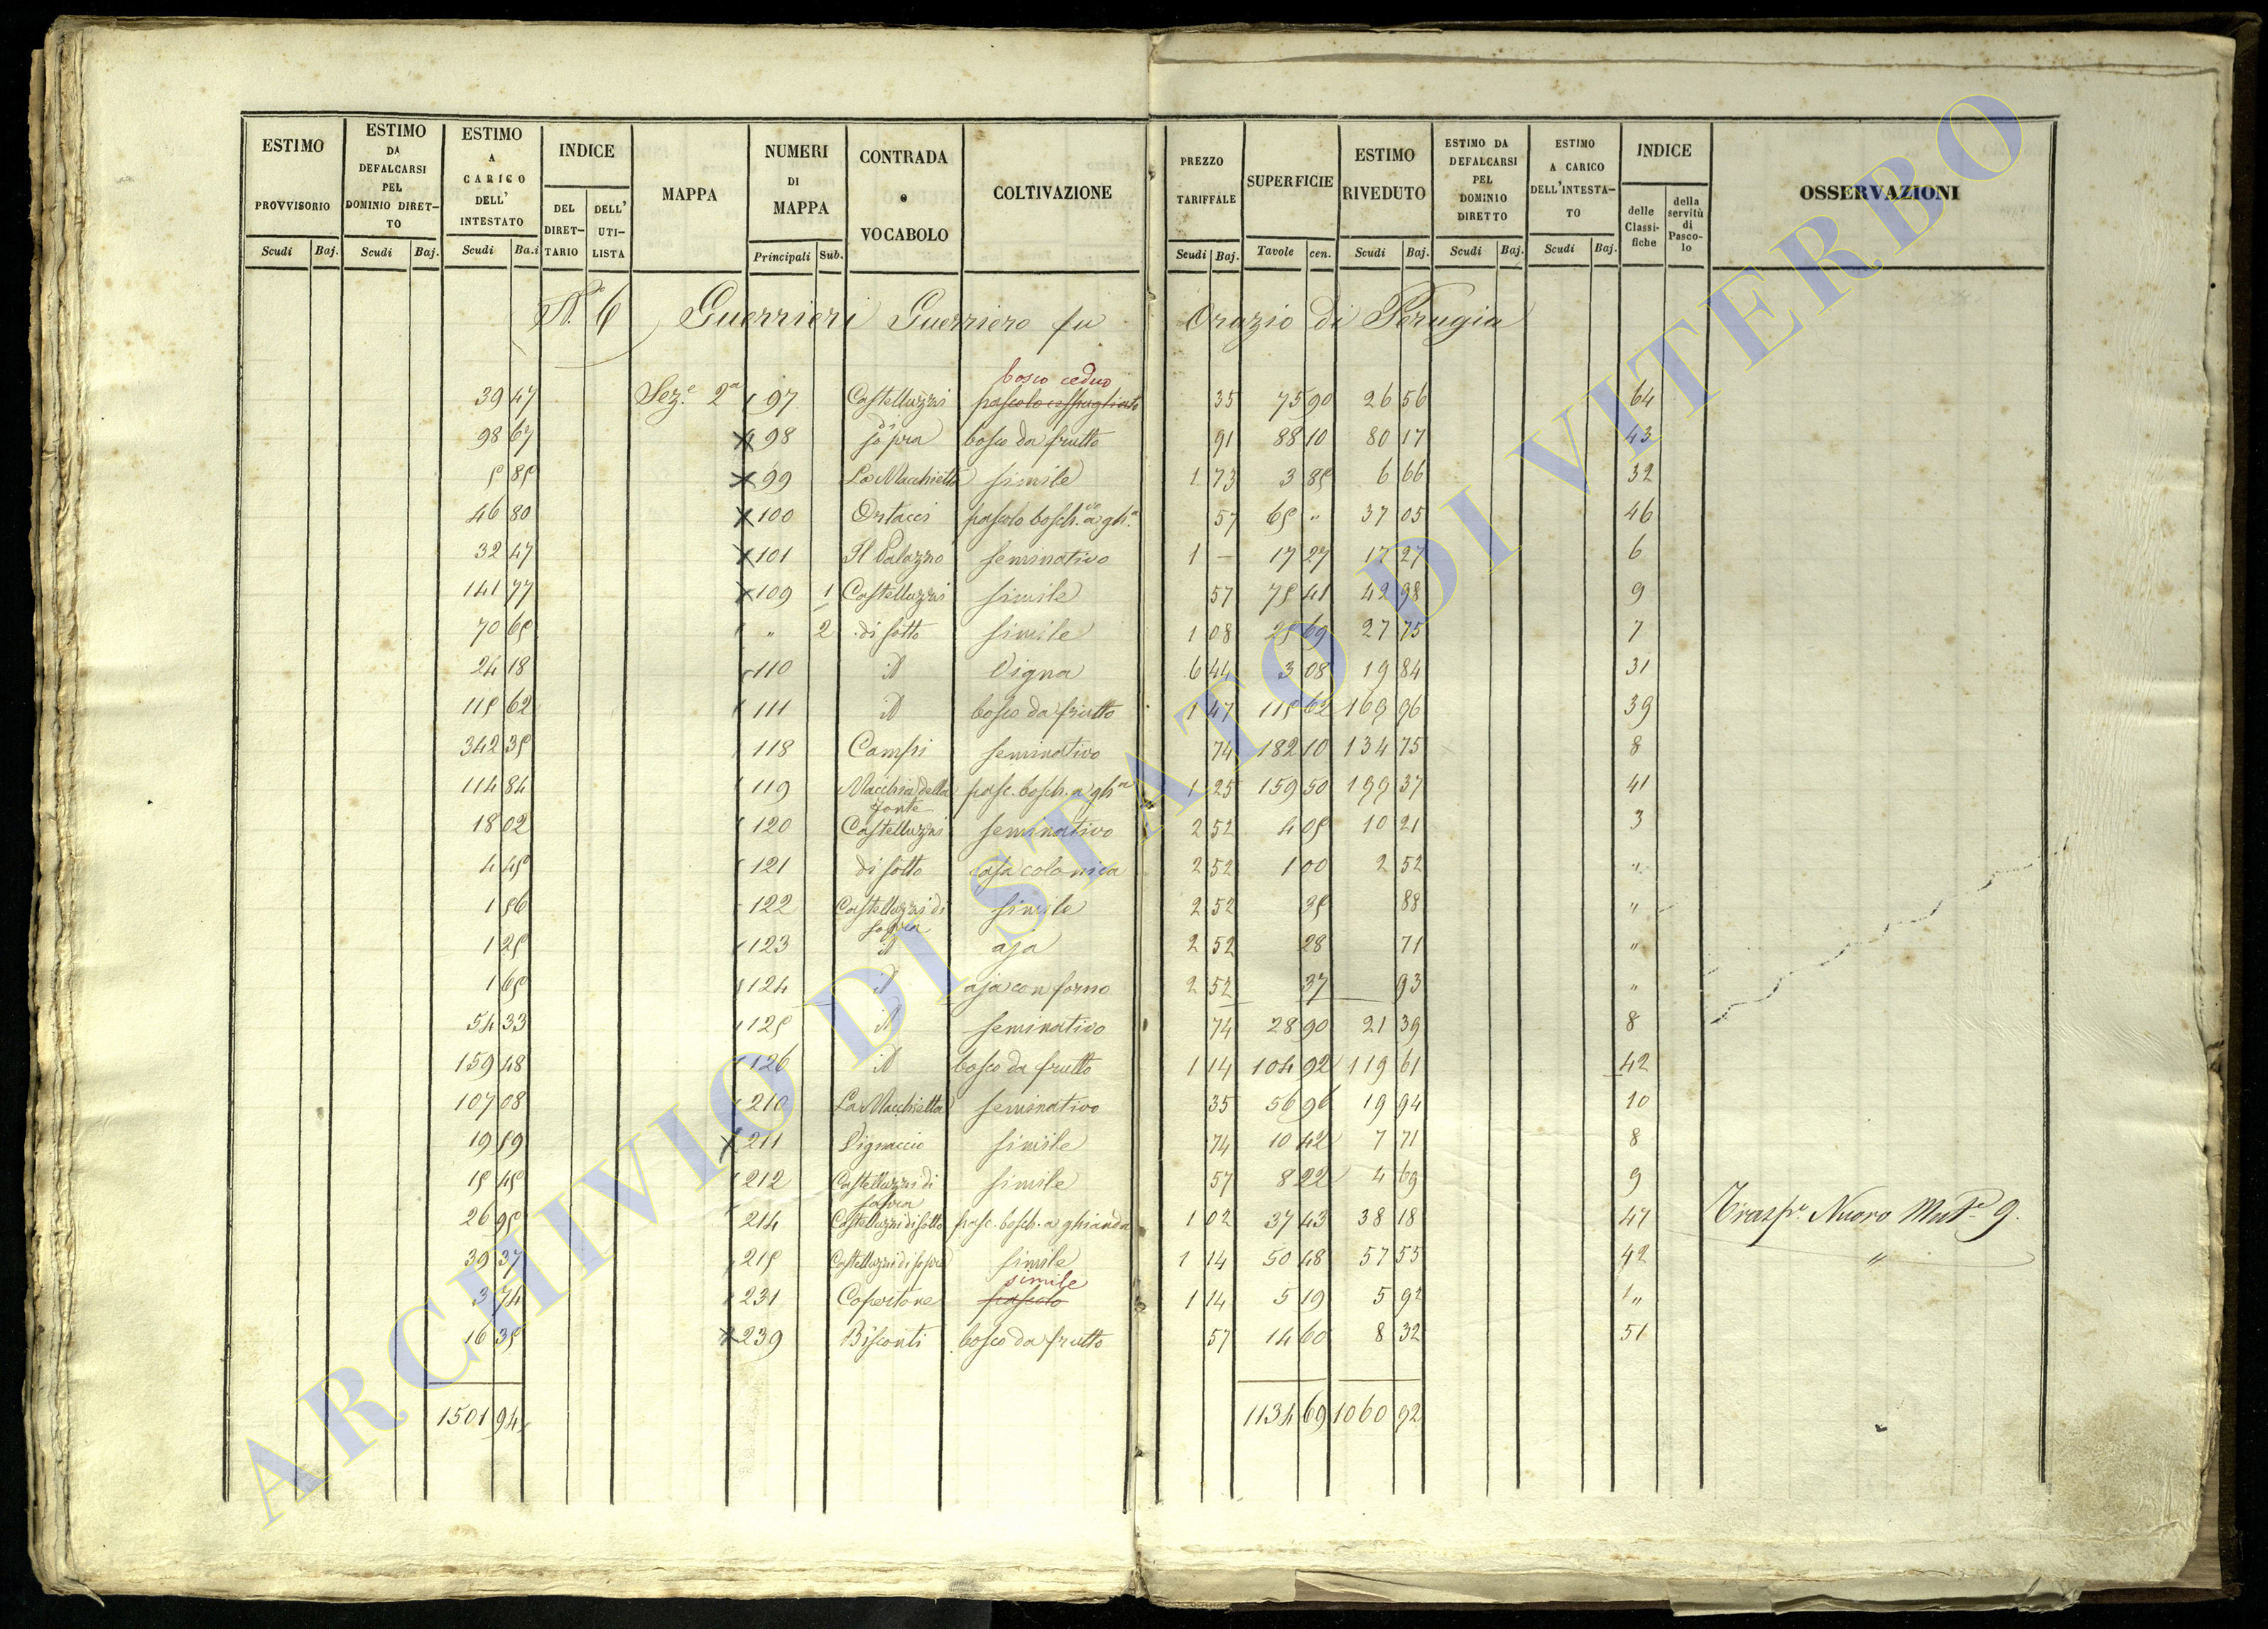 ESTIMO PROVVISORIO Scudi Baj.
ESTIMO DA DEFALCARSI PEL DOMINIO DIRETTO Scudi Baj.
ESTIMO A CARICO DELL' INTESTATO Scudi Ba.i
INDICE DEL DIRETTARIO DELL' UTILISTA
MAPPA
NUMERI DI MAPPA Principali Sub.
CONTRADA o VOCABOLO
COLTIVAZIONE
PREZZO TARIFFALE Scudi Baj.
SUPERFICIE Tavole cen.
ESTIMO RIVEDUTO Scudi Baj.
ESTIMO DA DEFALCARSI PEL DOMINIO DIRETTO Scudi Baj.
ESTIMO A CARICO DELL'INTESTATO Scudi Baj.
INDICE delle Classifiche della servitù di Pascolo
OSSERVAZIONI
N.° 6 Guerrieri Guerriero fu Orazio di Perugia
bosco ceduo
39 47 Sez.e 2a 97 Castelluzzi pascolo cespugliato 35 75 90 26 56 64
98 67 98 di sopra bosco da frutto 91 88 10 80 17 43
5 85 99 La Macchietta simile 1 73 3 85 6 66 32
46 80 100 Ortacci pascolo bosch.vo a gh.a 57 65 " 37 05 46
32 47 101 Il Palazzo seminativo 1 — 17 27 17 27 6
141 77 109 1 Castelluzzi simile 57 75 41 42 98 9
70 65 " 2 di sotto simile 1 08 25 69 27 75 7
24 18 110 id Vigna 6 44 3 08 19 84 31
115 62 111 id bosco da frutto 1 47 115 62 169 96 39
342 35 118 Campi seminativo 74 182 10 134 75 8
114 84 119 Macchia della Fonte pasc. bosch. a gh.a 1 25 159 50 199 37 41
18 02 120 Castelluzzi seminativo 2 52 4 05 10 21 3
4 45 121 di sotto casa colonica 2 52 1 00 2 52 "
1 56 122 Castelluzzi di sopra simile 2 52 35 88 "
1 25 123 id aja 2 52 28 71 "
1 65 124 id aja con forno 2 52 37 93 "
54 33 125 id seminativo 74 28 90 21 39 8
159 48 126 id bosco da frutto 1 14 104 92 119 61 42
107 08 210 La Macchietta seminativo 35 56 96 19 94 10
19 59 211 Vignaccio simile 74 10 42 7 71 8
15 45 212 Castelluzzi di sopra simile 57 8 22 4 69 9
26 95 214 Castelluzzi di sotto pasc. bosch. a ghianda 1 02 37 43 38 18 47 Trasp.o Nuovo Mut.e 9.
39 37 215 Castelluzzi di sopra simile 1 14 50 48 57 55 42 "
simile
3 74 231 Copertone pascolo 1 14 5 19 5 92 1 "
16 35 239 Bisconti bosco da frutto 57 14 60 8 32 51
1501 94 1134 69 1060 92
ARCHIVIO DI STATO DI VITERBO